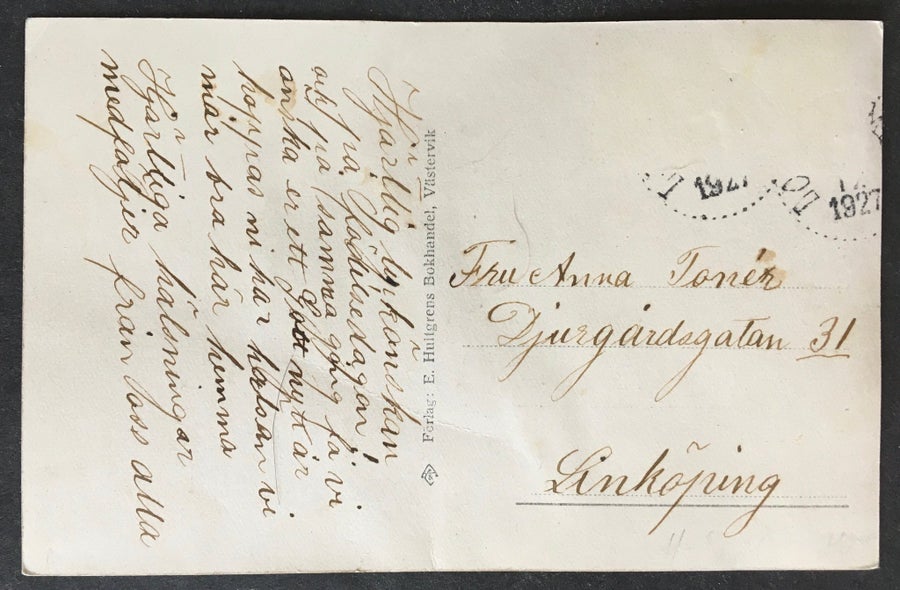 Hjärtlig lyckönskan
på födelsedagen!
och på samma gång få vi
önska er ett Gott nytt år
hoppas ni har hälsan vi
mår bra här hemma
Hjärtliga hälsningar
medföljer från oss alla
Förlag: E. Hultgrens Bokhandel, Västervik
1927
1927
Fru Anna Tonér
Djurgårdsgatan 31
Linköping